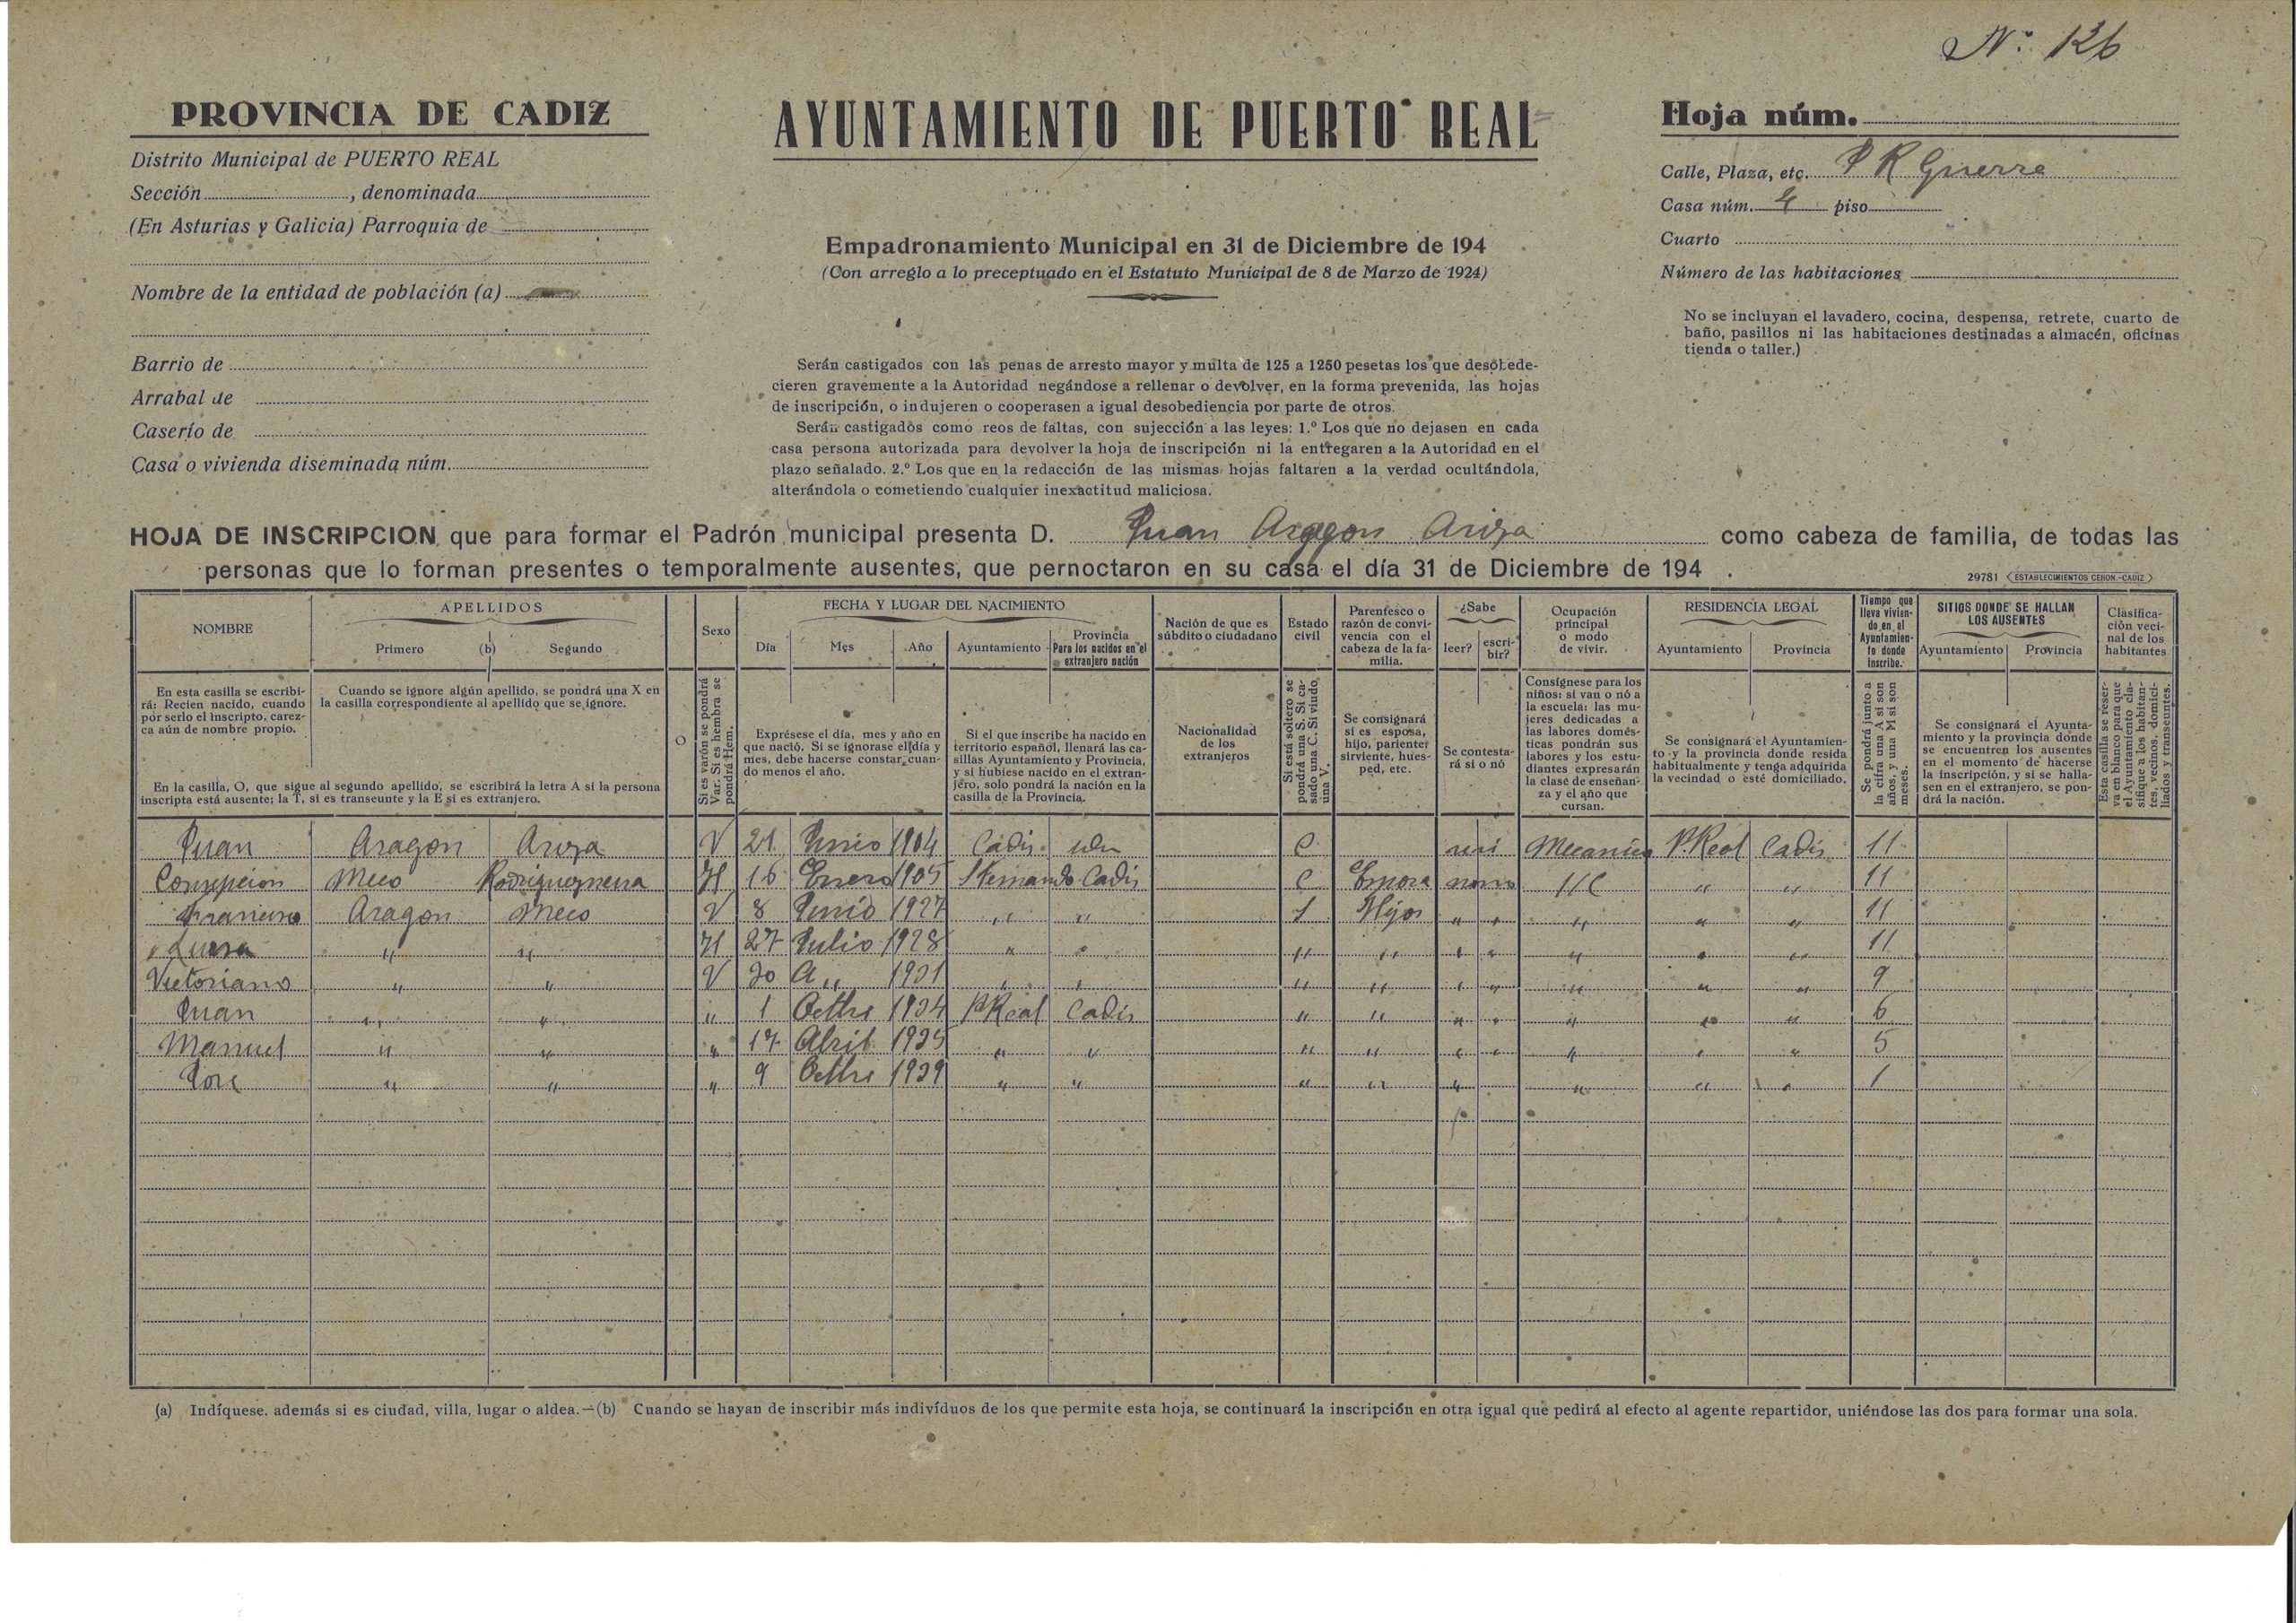 Nº 126
PROVINCIA DE CADIZ
AYUNTAMIENTO DE PUERTO REAL
Hoja núm.
Distrito Municipal de PUERTO REAL
Sección , denominada
(En Asturias y Galicia) Parroquia de
Nombre de la entidad de población (a)
Barrio de
Arrabal de
Caserío de
Casa o vivienda diseminada núm.
Empadronamiento Municipal en 31 de Diciembre de 194
(Con arreglo a lo preceptuado en el Estatuto Municipal de 8 de Marzo de 1924)
Serán castigados con las penas de arresto mayor y multa de 125 a 1250 pesetas los que desobede-
cieren gravemente a la Autoridad negándose a rellenar o devolver, en la forma prevenida, las hojas
de inscripción, o indujeren o cooperasen a igual desobediencia por parte de otros.
Serán castigados como reos de faltas, con sujección a las leyes: 1.º Los que no dejasen en cada
casa persona autorizada para devolver la hoja de inscripción ni la entregaren a la Autoridad en el
plazo señalado. 2.º Los que en la redacción de las mismas hojas faltaren a la verdad ocultándola,
alterándola o cometiendo cualquier inexactitud maliciosa.
Calle, Plaza, etc. P R Guerra
Casa núm. 4 piso
Cuarto
Número de las habitaciones
No se incluyan el lavadero, cocina, despensa, retrete, cuarto de
baño, pasillos ni las habitaciones destinadas a almacén, oficinas
tienda o taller.)
HOJA DE INSCRIPCION que para formar el Padrón municipal presenta D. Juan Aragon Ariza como cabeza de familia, de todas las
personas que lo forman presentes o temporalmente ausentes, que pernoctaron en su casa el día 31 de Diciembre de 194 .
29781 ESTABLECIMIENTOS CERON.-CADIZ
NOMBRE
APELLIDOS
Primero (b) Segundo
Sexo
FECHA Y LUGAR DEL NACIMIENTO
Día Mes Año Ayuntamiento
Provincia
Para los nacidos en el
extranjero nación
Nación de que es
súbdito o ciudadano
Estado
civil
Parentesco o
razón de convi-
vencia con el
cabeza de la fa-
milia.
¿Sabe
leer? escri-
bir?
Ocupación
principal
o modo
de vivir.
RESIDENCIA LEGAL
Ayuntamiento Provincia
Tiempo que
lleva vivien-
do en el
Ayuntamien-
to donde
inscribe.
SITIOS DONDE SE HALLAN
LOS AUSENTES
Ayuntamiento Provincia
Clasifica-
ción veci-
nal de los
habitantes
En esta casilla se escribi-
rá: Recien nacido, cuando
por serlo el inscripto, carez-
ca aún de nombre propio.
Cuando se ignore algún apellido, se pondrá una X en
la casilla correspondiente al apellido que se ignore.
En la casilla, O, que sigue al segundo apellido, se escribirá la letra A si la persona
inscripta está ausente; la T, si es transeunte y la E si es extranjero.
O
Si es varón se pondrá
Var. Si es hembra se
pondrá Hem.
Exprésese el día, mes y año en
que nació. Si se ignorase el día y
mes, debe hacerse constar cuan-
do menos el año.
Si el que inscribe ha nacido en
territorio español, llenará las ca-
sillas Ayuntamiento y Provincia,
y si hubiese nacido en el extran-
jero, solo pondrá la nación en la
casilla de la Provincia.
Nacionalidad
de los
extranjeros
Si está soltero se
pondrá una S. Si ca-
sado una C. Si viudo
una V.
Se consignará
si es esposa,
hijo, pariente,
sirviente, hues-
ped, etc.
Se contesta-
rá si o nó
Consígnese para los
niños: si van o nó a
la escuela: las mu-
jeres dedicadas a
las labores domés-
ticas pondrán sus
labores y los estu-
diantes expresarán
la clase de enseñan-
za y el año que
cursan.
Se consignará el Ayuntamien-
to y la provincia donde resida
habitualmente y tenga adquirida
la vecindad o esté domiciliado.
Se pondrá junto a
la cifra una A si son
años, y una M si son
meses.
Se consignará el Ayunta-
miento y la provincia donde
se encuentren los ausentes
en el momento de hacerse
la inscripción, y si se halla-
sen en el extranjero, se pon-
drá la nación.
Esta casilla se reser-
va en blanco para que
el Ayuntamiento cla-
sifique a los habitan-
tes, vecinos, domici-
liados y transeuntes.
Juan Aragon Ariza V 21 Junio 1904 Cadiz idm C sisi Mecanico P.Real Cadiz 11
Concepcion Meco H 16 Enero 1905 S Fernando Cadiz C Esposa nono " " 11
Francisco Aragon Meco V 8 Junio 1927 " " S Hijos " " " " " 11
Luisa " " H 27 Julio 1928 " " " " " " " " " 11
Victoriano " " V 30 A " 1931 " " " " " " " " " 9
Juan " " " 1 Octbre 1934 P.Real Cadiz " " " " " " " 6
Manuel " " " 17 Abril 1935 " " " " " " " " " 5
Jose " " " 9 Octbre 1939 " " " " " " " " 1
(a) Indíquese. además si es ciudad, villa, lugar o aldea.—(b) Cuando se hayan de inscribir más indivíduos de los que permite esta hoja, se continuará la inscripción en otra igual que pedirá al efecto al agente repartidor, uniéndose las dos para formar una sola.